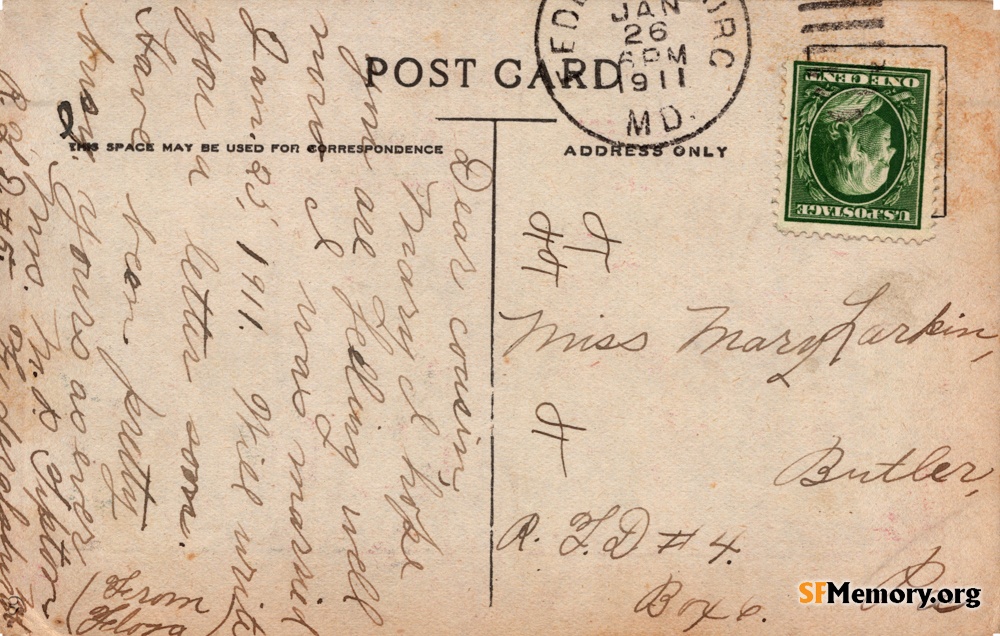 POST CARD
THIS SPACE MAY BE USED FOR CORRESPONDENCE
ADDRESS ONLY
JAN
26
6 PM
1911
MD.
ONE CENT
U.S. POSTAGE
Dear cousin,
Mary I hope
you are feeling well
now I was married
Jan. 25, 1911. Will write
you a letter soon.
Have been pretty
busy. Yours as ever
Mrs. N. S.
R. F. D. #5.
(From
Flora
Miss Mary Larkin,
Butler,
R. F. D # 4.
Box 6.
Pa
SFMemory.org